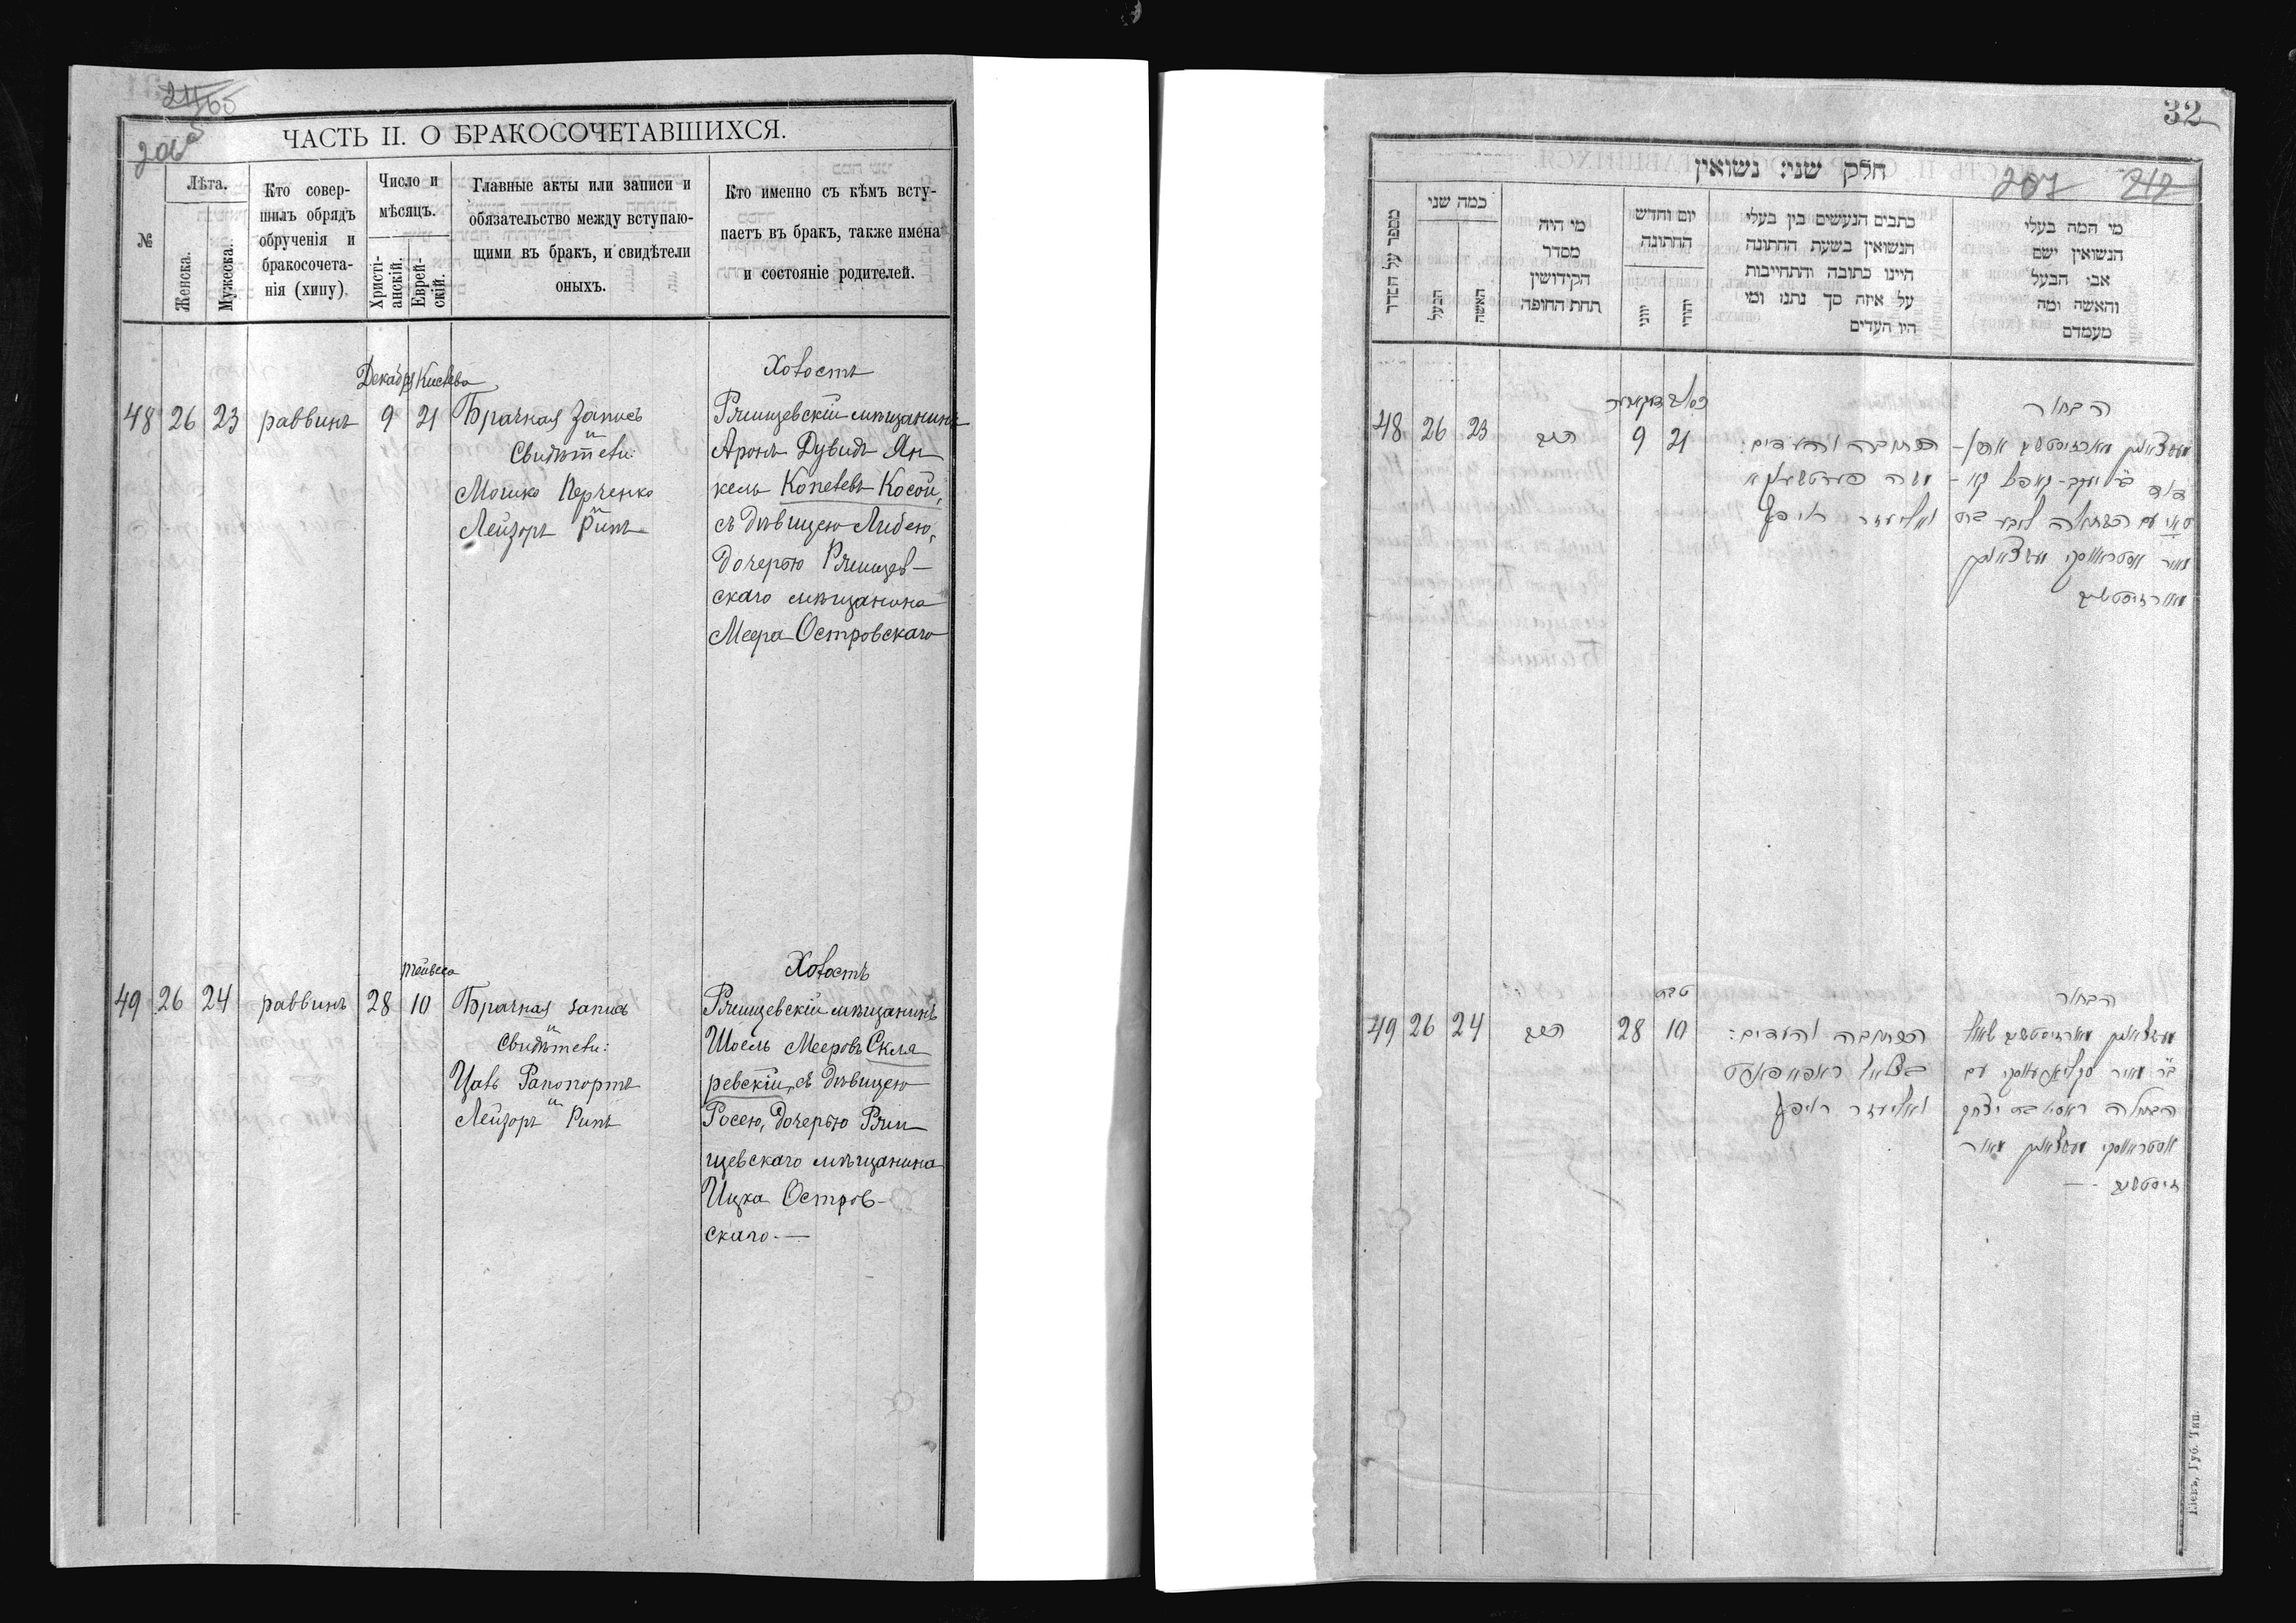 205
ЧАСТЬ II. О БРАКОСОЧЕТАВШИХСЯ.
№
Лѣта.
Женска.
Мужеска.
Кто совер-
шилъ обрядъ
обрученія и
бракосочета-
нія (хипу)
Число и
мѣсяцъ.
Христі-
анскій.
Еврей-
скій.
Главные акты или записи и
обязательство между вступаю-
щими въ бракъ, и свидѣтели
оныхъ.
Кто именно съ кѣмъ всту-
паетъ въ бракъ, также имена
и состояніе родителей.
48
26
23
раввинъ
Декабря
9
Кислева
21
Брачная запись
и
Свидѣтели:
Мошко Перченко
и
Лейзоръ Рипъ
Холостъ
Ржищевскій мѣщанинъ
Аронъ Дувидъ Ян
кель Копелевъ Косой,
съ дѣвицею Либею,
дочерью Ржищев-
скаго мѣщанина
Меера Островскаго
49
26
24
раввинъ
28
Тейвеса
10
Брачная запись
и
Свидѣтели:
Цаль Рапопортъ
и
Лейзоръ Рипъ
Холостъ
Ржищевскій мѣщанинъ
Шоель Мееровъ Скля
ревскій, съ дѣвицею
Росею, дочерью Ржи
щевскаго мѣщанина
Ицка Остров-
скаго.—
32
207 212
חלק שני: נשואין
מספר על הסדר
כמה שני
הבעל
האשה
מי היה
מסדר
הקידושין
תחת החופה
יום וחדש
החתונה
יווני
יהודי
כתבים הנעשים בין בעלי
הנשואין בשעת החתונה
היינו כתובה והתחייבות
על איזה סך נתנו ומי
היו העדים
מי המה בעלי
הנשואין ושם
אבי הבעל
והאשה ומה
מעמדם
48
26
23
הרב
9
כסלו
21
הכתובה והעדים:
משה פערטשענקא
ואליעזר ריפ
הבחור
49
26
24
הרב
28
טבת
10
הכתובה והעדים:
בצלאל ראפאפארט
ואליעזר ריפ
הבחור
Кіевъ, Губ. Тип.